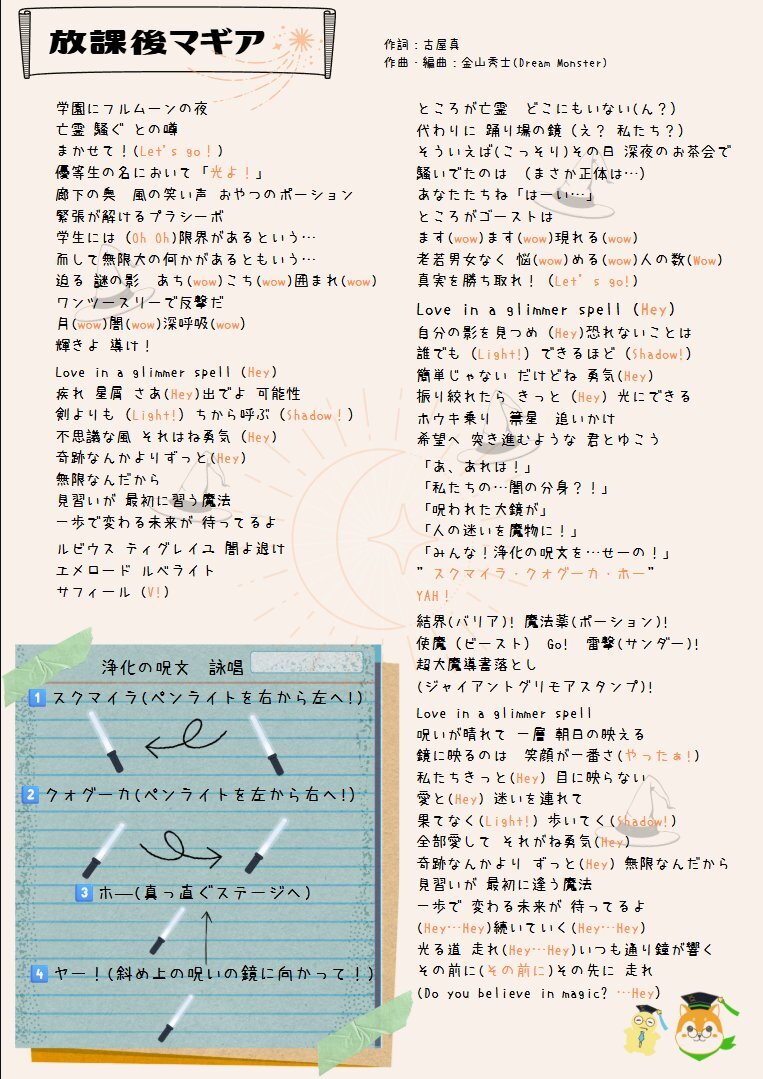 放課後マギア
作詞：古屋真
作曲・編曲：金山秀士(Dream Monster)
学園にフルムーンの夜
亡霊 騒ぐ との噂
まかせて！(Let's go！)
優等生の名において「光よ！」
廊下の奥　風の笑い声 おやつのポーション
緊張が解けるプラシーボ
学生には (Oh Oh)限界があるという…
而して無限大の何かがあるともいう…
迫る 謎の影　あち(wow)こち(wow)囲まれ(wow)
ワンツースリーで反撃だ
月(wow)闇(wow)深呼吸(wow)
輝きよ 導け！
Love in a glimmer spell (Hey)
疾れ 星屑 さあ(Hey)出でよ 可能性
剣よりも (Light!) ちから呼ぶ (Shadow！)
不思議な風 それはね勇気 (Hey)
奇跡なんかよりずっと(Hey)
無限なんだから
見習いが 最初に習う魔法
一歩で変わる未来が 待ってるよ
ルビウス ティグレイユ 闇よ退け
エメロード ルベライト
サフィール (V!)
ところが亡霊　どこにもいない(ん？)
代わりに 踊り場の鏡 (え？ 私たち？)
そういえば(こっそり)その日 深夜のお茶会で
騒いでたのは　(まさか正体は…)
あなたたちね「はーい…」
ところがゴーストは
ます(wow)ます(wow)現れる(wow)
老若男女なく 悩(wow)める(wow)人の数(Wow)
真実を勝ち取れ！ (Let's go!)
Love in a glimmer spell (Hey)
自分の影を見つめ (Hey)恐れないことは
誰でも (Light!) できるほど (Shadow!)
簡単じゃない だけどね 勇気(Hey)
振り絞れたら きっと (Hey) 光にできる
ホウキ乗り　箒星　追いかけ
希望へ 突き進むような 君とゆこう
「あ、あれは！」
「私たちの…闇の分身？！」
「呪われた大鏡が」
「人の迷いを魔物に！」
「みんな！浄化の呪文を…せーの！」
”スクマイラ・クォダーカ・ホー”
YAH！
結界(バリア)! 魔法薬(ポーション)!
使魔 (ビースト)　Go!　雷撃(サンダー)!
超大魔導書落とし
(ジャイアントグリモアスタンプ)!
Love in a glimmer spell
呪いが晴れて 一層 朝日の映える
鏡に映るのは　笑顔が一番さ(やったぁ!)
私たちきっと(Hey) 目に映らない
愛と(Hey) 迷いを連れて
果てなく(Light!) 歩いてく(Shadow!)
全部愛して それがね勇気(Hey)
奇跡なんかより ずっと(Hey) 無限なんだから
見習いが 最初に逢う魔法
一歩で 変わる未来が 待ってるよ
(Hey…Hey)続いていく(Hey…Hey)
光る道 走れ(Hey…Hey)いつも通り鐘が響く
その前に(その前に)その先に 走れ
(Do you believe in magic? …Hey)
浄化の呪文　詠唱
1 スクマイラ(ペンライトを右から左へ!)
2 クォダーカ(ペンライトを左から右へ!)
3 ホー(真っ直ぐステージへ)
4 ヤー！(斜め上の呪いの鏡に向かって！)